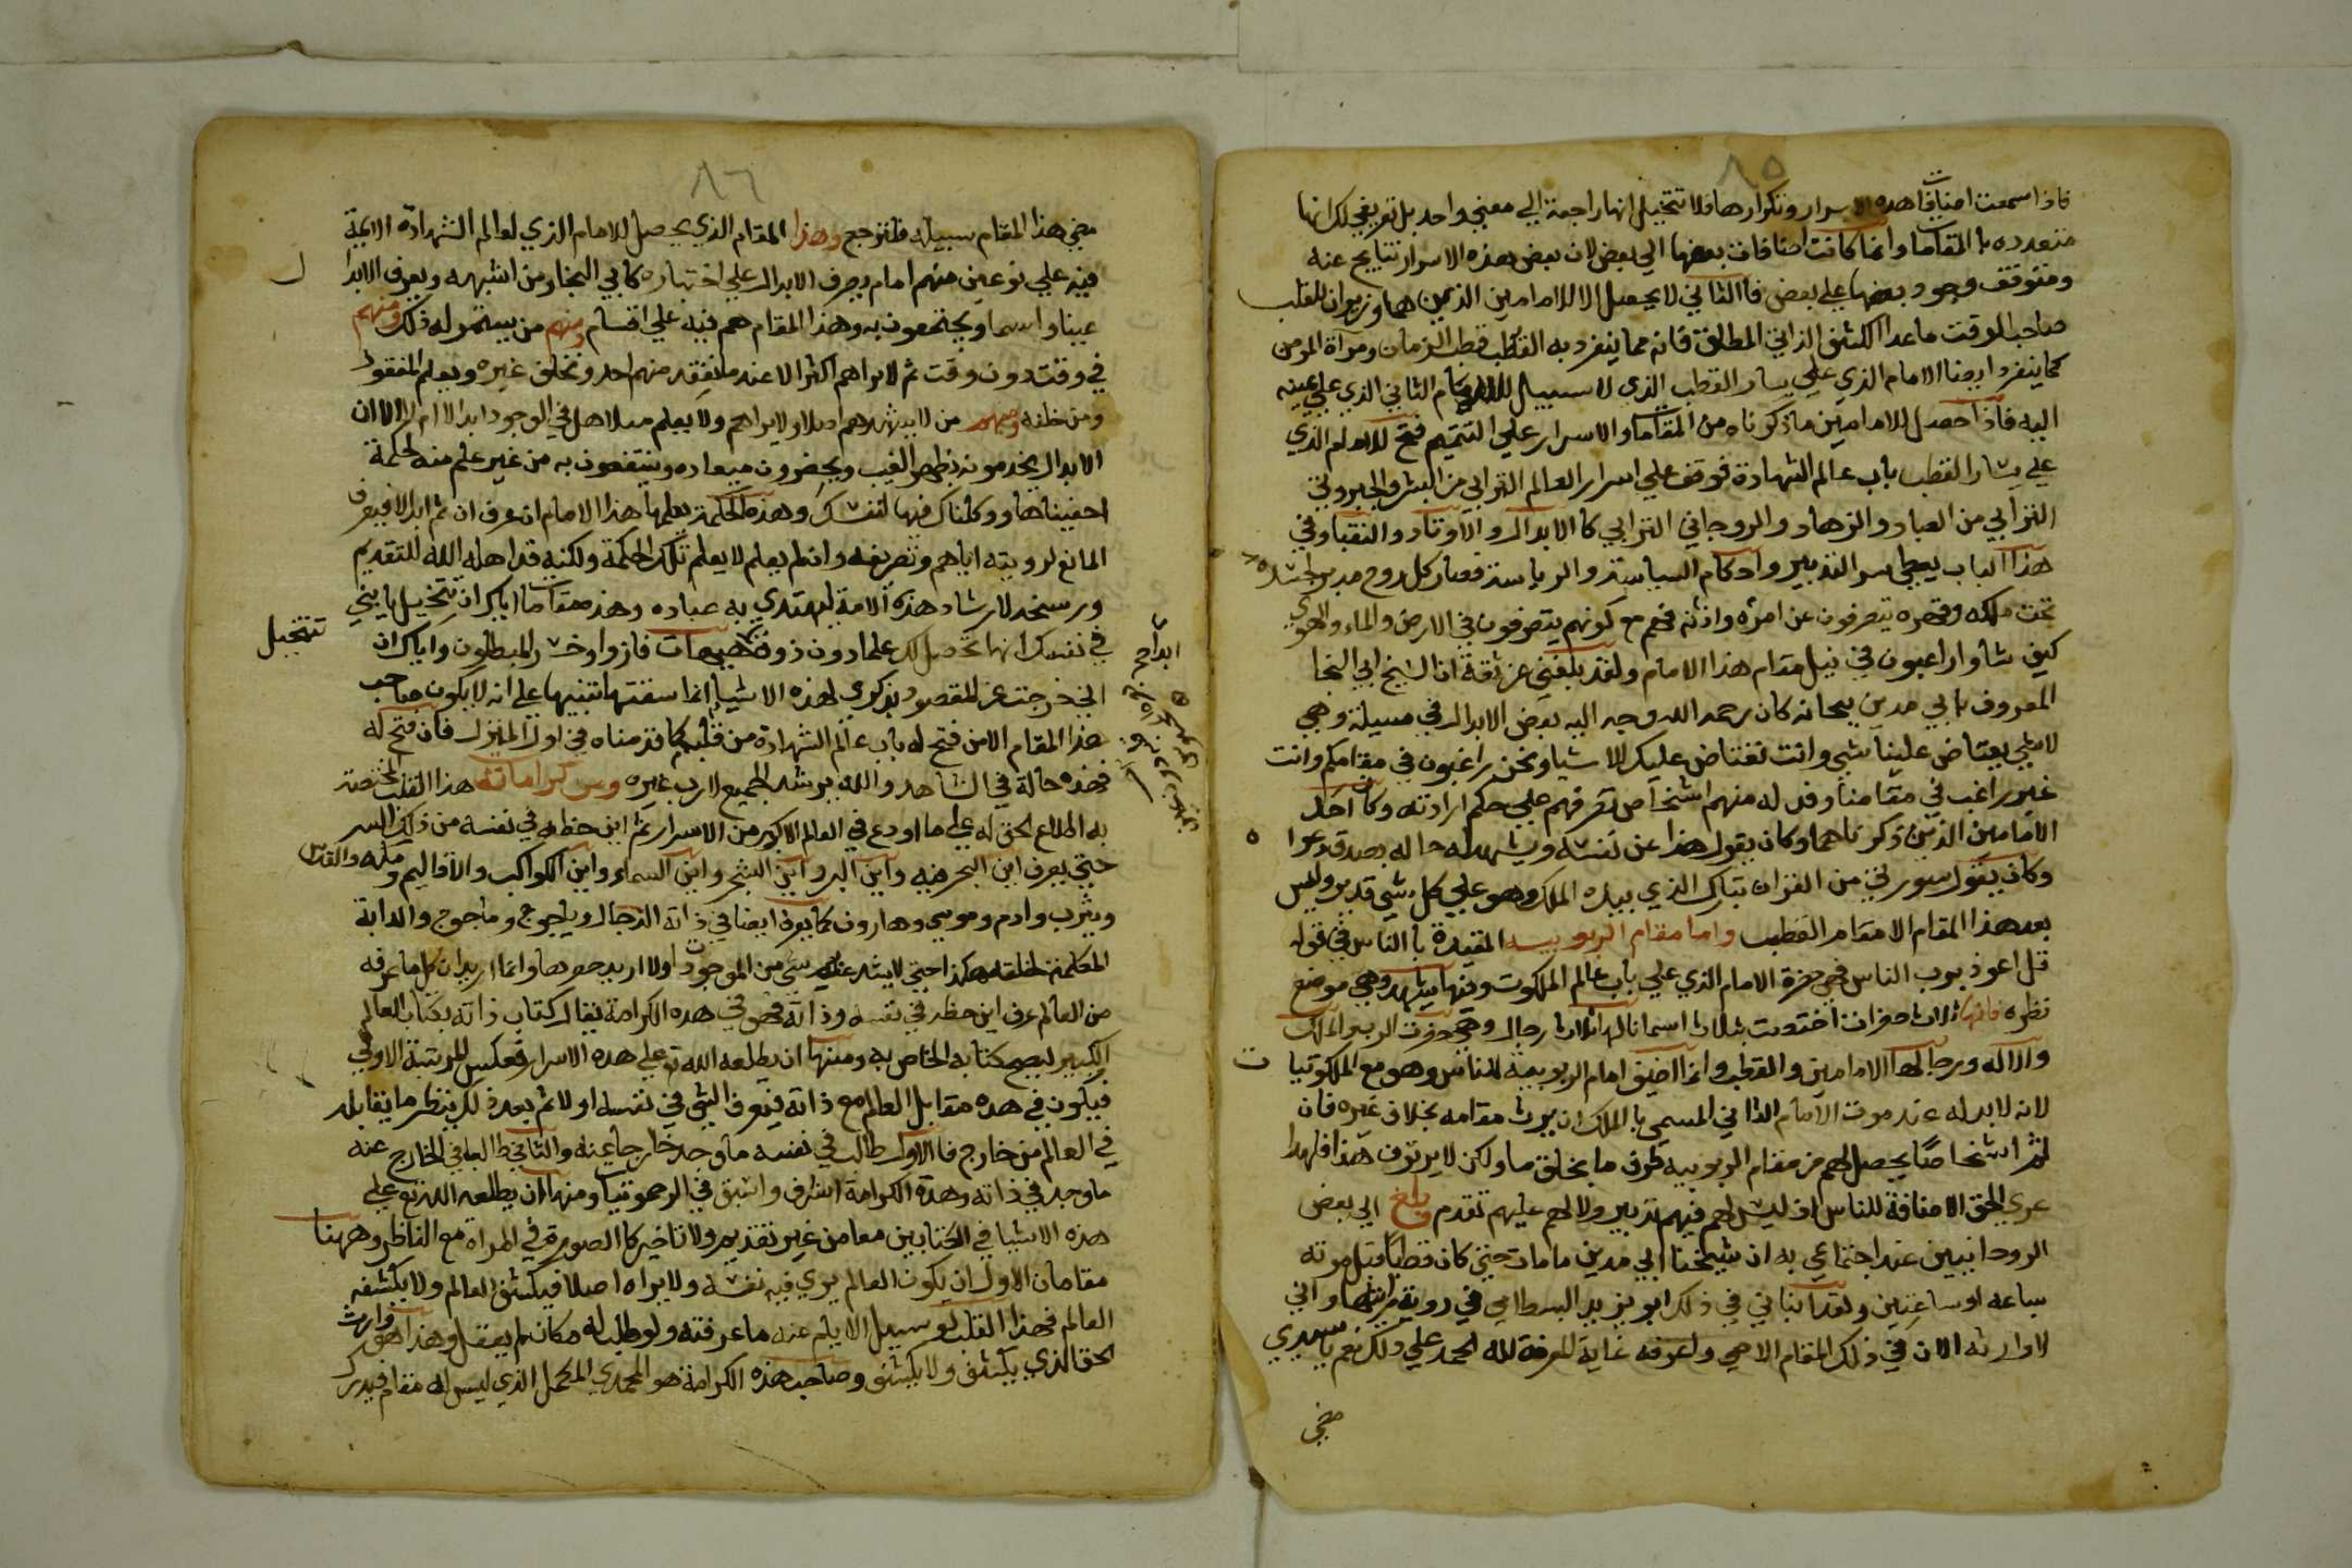 ٨٥
فاذا سمعت اضافات هذه الاسرار وتكرارها فلا تتخيل انها راجعة الي معني واحد بل تعريفي لك انها
متعدده بالمقامات وانما كانت اضافات بعضها الي بعض لان بعض هذه الاسرار نتايج عنه
ومتوقف وجود بعضها علي بعض فالثاني لا يحصل الا للامامين الذين هما وزيران للقطب
صاحب الوقت ما عدا الكشف الذاتي المطلق فانه مما ينفرد به القطب قطب الزمان ومرآة المومن
كما ينفرد ايضا الامام الذي علي يسار القطب الذي لا سبيل للامام الثاني الذي علي يمينه
اليه فاذا حصل للامامين ما ذكرناه من المقامات والاسرار علي التتميم فتح للامام الذي
علي يسار القطب باب عالم الشهادة فوقف علي اسرار العالم الترابي من البشر والجبروتي
الترابي من العباد والزهاد والروحاني الترابي كالابدال والاوتاد والنقباو في
هذا الباب يعطي سر التدبير واحكام السياسة والرياسة فصار كل روح مدبر لجسده
تحت ملكه وقهره يتصرفون عن امره واذنه فهم مع كونهم يتصرفون في الارض والماء والهوي
كيف شاوا راغبون في نيل مقام هذا الامام ولقد بلغني عن ثقة ان الشيخ ابي النجا
المعروف بابي مدين ببجانه كان رحمه الله وجه اليه بعض الابدال في مسيلة وهي
لاشي يعتاض علينا شي وانت تعتاض عليك الاشياو نحن راغبون في مقامكم وانت
غير راغب في مقامنا وفد له منهم اشخاص تعرفهم علي حكم ارادته وكان احد
الامامين الذين ذكرناهما وكان يقول هذا عن نفسه ويشهد له حاله بصدق دعوا ه
وكان يقول سورتي من القران تبارك الذي بيده الملك وهو علي كل شي قدير وليس
بعد هذا المقام الا مقام القطب واما مقام الربوبيه المقيدة بالناس في قوله
قل اعوذ برب الناس فهي حضرة الامام الذي علي باب عالم الملكوت وفيها يشاهد وهي موضع
نظره فانها ثلاث حضرات اختصت بثلاث اسما نالها ثلاث رجال وهي حضرت الرب والملك
والاله ورجالها الامامين والقطب وانما اضيف امام الربوبية للناس وهو مع الملكوتيات
لانه لابد له عند موت الامام الثاني المسمي بالملك ان يرث مقامه بخلاف غيره فان
ثم اشخاصا يحصل لهم من مقام الربوبيه طرف ما بخلق ما ولكن لا يرثون هذا فلهذا
عري الحق الاضافة للناس اذ ليس لهم فيهم تدبير ولا لهم عليهم تقدم بلغ الي بعض
الروحانيين عند اجتماعي به ان شيخنا ابي مدين ما مات حتي كان قطبا قبل موته
بساعه او ساعتين ولقد انباني في ذلك ابو يزيد البسطامي في روية رايتها واني
لاوارثه الان في ذلك المقام الاحمي ولمعرفه غاية المعرفة لله الحمد علي ذلك نعم يا سيدي
صح
٨٦
صح هذا المقام سبيله فلنرجع وهذا المقام الذي يحصل للامام الذي لعالم الشهادة الايمة
فيه علي نوعين منهم امام يصرف الابدال علي اختياره كابي النجا ومن اشبهه ويعرف الابدا ل
عينا واسما ويجتمعون به وهذا المقام هم فيه علي اقسام منهم من يستمر له ذلك ومنهم
في وقت دون وقت ثم لا يراهم اكثر الا عند ما يفقد منهم احد ويخلق غيره ويعلم المفقود
ومن خلفه ومنهم من لا يشهدهم اصلا ولا يراهم ولا يعلم مثلا هل في الوجود ابدالا ام لا الا ان
الابدال يخدمونه بظهر الغيب ويحضرون ميعاده وينتفعون به من غير علم منه لحكمة
اخفيناها ووكلناك فيها لنفسك وهذه الحكمة يعلمها هذا الامام ان عرف ان ثم ابدالا فيعرف
المانع لرويته اياهم وتصريفه وان لم يعلم لا يعلم تلك الحكمة ولكنه قد اهله الله للتقديم
ورسخه لارشاد هذه الامة ليهتدي به عباده وهذه مقامات اياك ان تتخيل يابني
تتخيل
في نفسك انها تحصل لك علما دون ذوق هيهات فاز واخسر المبطلون واياك ان
اني خرجت عن المقصود بذكري لهذه الاشيا انما سقتها تنبيها علي انه لا يكون صاحب
هذا المقام الا من فتح له باب عالم الشهادة من قلبه كما قدمناه في اول المنزل فان فتح له
فهذه حالة في الشاهد والله يرشد الجميع لا رب غيره ومن كراماته هذا القلب المختصة
به اطلاع الحق له علي ما اودع في العالم الاكبر من الاسرار ثم اين حظه في نفسه من ذلك السر
حتي يعرف اين البحر فيه واين البر واين الشجر واين السماء واين الكواكب والاقاليم ومكه والقدس
ويثرب وادم وموسي وهارون كما يعرف ايضا في ذاته الدجال وياجوج وماجوج والدابة
المكلمة لخلقه هكذا حتي لا يشذ عنه شي من الموجودات اولا اريد حصرها وانما اريد ان كل ما عرفه
من العالم عرف اين حظه في نفسه وذاته فهو في هذه الكرامة يقابل كتاب ذاته بكتاب العالم
الكبير ليصح كتابه الخاص به ومنها ان يطلعه الله تع علي هذه الاسرار فعكس المرتبة الاولي
فيكون في هذه مقابل العالم مع ذاته فيعرف الشي في نفسه اولا ثم بعد ذلك ينظر ما يقابله
في العالم من خارج فالاول طالب في نفسه ما وجد خارجا عنه والثاني طالب في الخارج عنه
ما وجد في ذاته وهذه الكرامة اشرف واسبق في الرحموتيا ومنها ان يطلعه الله تع علي
هذه الاشيا في الكتابين معا من غير تقديم ولا تاخير كالصورة في المراة مع الناظر وههنا
مقامان الاول ان يكون العالم يري فيه نفسه ولا يراه اصلا فيكشف العالم ولا يكشفه
العالم فهذا القلب لو سبيل الايلم عنه ما عرفته ولو طلب له مكان لم يعقل وهذا هو وارث
الحق الذي يكشف ولا يكشف وصاحب هذه الكرامة هو المحمدي المكمل الذي ليس له مقام فيدرك